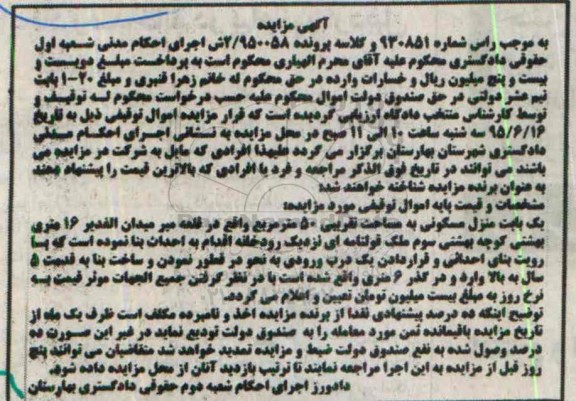 آگهی مزایده
به موجب رای شماره ۹۳۰۸۵۱ و کلاسه پرونده ۲/۹۵۰۰۵۸ش اجرای احکام مدنی شعبه اول
حقوقی دادگستری محکوم علیه آقای محرم الهیاری محکوم است به پرداخت مبلغ دویست و
بیست و پنج میلیون ریال و خسارات وارده در حق محکوم له خانم زهرا قنبری و مبلغ ۲۰-۱ بابت
نیم عشر دولتی در حق صندوق دولت اموال محکوم علیه حسب درخواست محکوم له توقیف و
توسط کارشناس منتخب دادگاه ارزیابی گردیده است که قرار مزایده اموال توقیفی ذیل به تاریخ
۹۵/۶/۱۶ سه شنبه ساعت ۱۰ الی ۱۱ صبح در محل مزایده به نشانی اجرای احکام مدنی
دادگستری شهرستان بهارستان برگزار می گردد علیهذا افرادی که مایل به شرکت در مزایده می
باشند می توانند در تاریخ فوق الذکر مراجعه و فرد یا افرادی که بالاترین قیمت را پیشنهاد دهند
به عنوان برنده مزایده شناخته خواهند شد:
مشخصات و قیمت پایه اموال توقیفی مورد مزایده:
یک بابت منزل مسکونی به مساحت تقریبی ۵۰ مترمربع واقع در قلعه میر میدان الغدیر ۱۶ متری
بهشتی کوچه بهشتی سوم ملک قولنامه ای نزدیک رودخانه اقدام به احداث بنا نموده است که با
رویت بنای احداثی و قراردادن یک درب ورودی به نحو در قطور نمودن و ساخت بنا به قدمت ۵
سال به بالا وارد و در گذر ۶ متری واقع شده است با در نظر گرفتن جمیع الجهات موثر قیمت به
نرخ روز به مبلغ بیست میلیون تومان تعیین و اعلام می گردد.
توضیح اینکه ده درصد پیشنهادی نقدا از برنده مزایده اخذ و نامبرده مکلف است ظرف یک ماه از
تاریخ مزایده باقیمانده ثمن مورد معامله را به صندوق دولت تودیع نماید در غیر این صورت ده
درصد وصول شده به نفع صندوق دولت ضبط و مزایده تمدید خواهد شد متقاضیان می توانند پنج
روز قبل از مزایده به این اجرا مراجعه نمایند تا ترتیب بازدید آنان از محل مزایده داده شود.
دادورز اجرای احکام شعبه دوم حقوقی دادگستری بهارستان